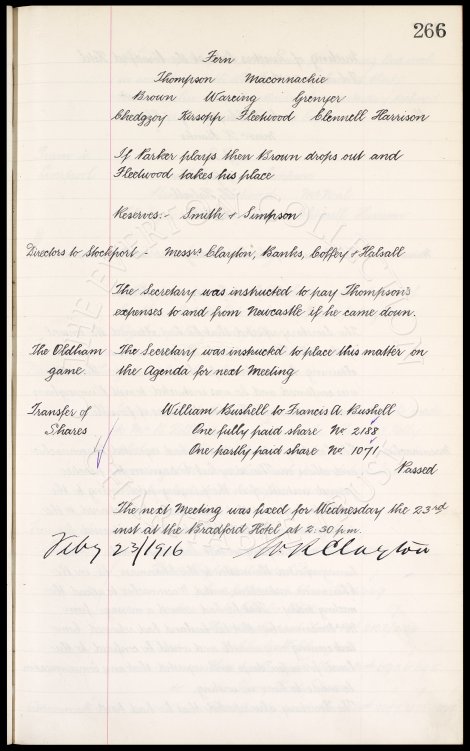 266
Fern
Thompson Maconnachie
Brown Wareing Grenyer
Chedgzoy Kirsopp Fleetwood Clennell Harrison
If Parker plays then Brown drops out and
Fleetwood takes his place
Reserves:- Smith & Simpson
Directors to Stockport - Messrs Clayton, Banks, Coffey & Halsall
The Secretary was instructed to pay Thompson's
expenses to and from Newcastle if he came down.
The Oldham The Secretary was instructed to place this matter on
game. the Agenda for next Meeting
Transfer of William Bushell to Francis A. Bushell
Shares One fully paid share No. 2188
One partly paid share No. 1071
Passed
The next Meeting was fixed for Wednesday the 23rd
inst at the Bradford Hotel at 2.30 p.m.
Feby 23/1916 W R Clayton
THE EVERTON COLLECTION